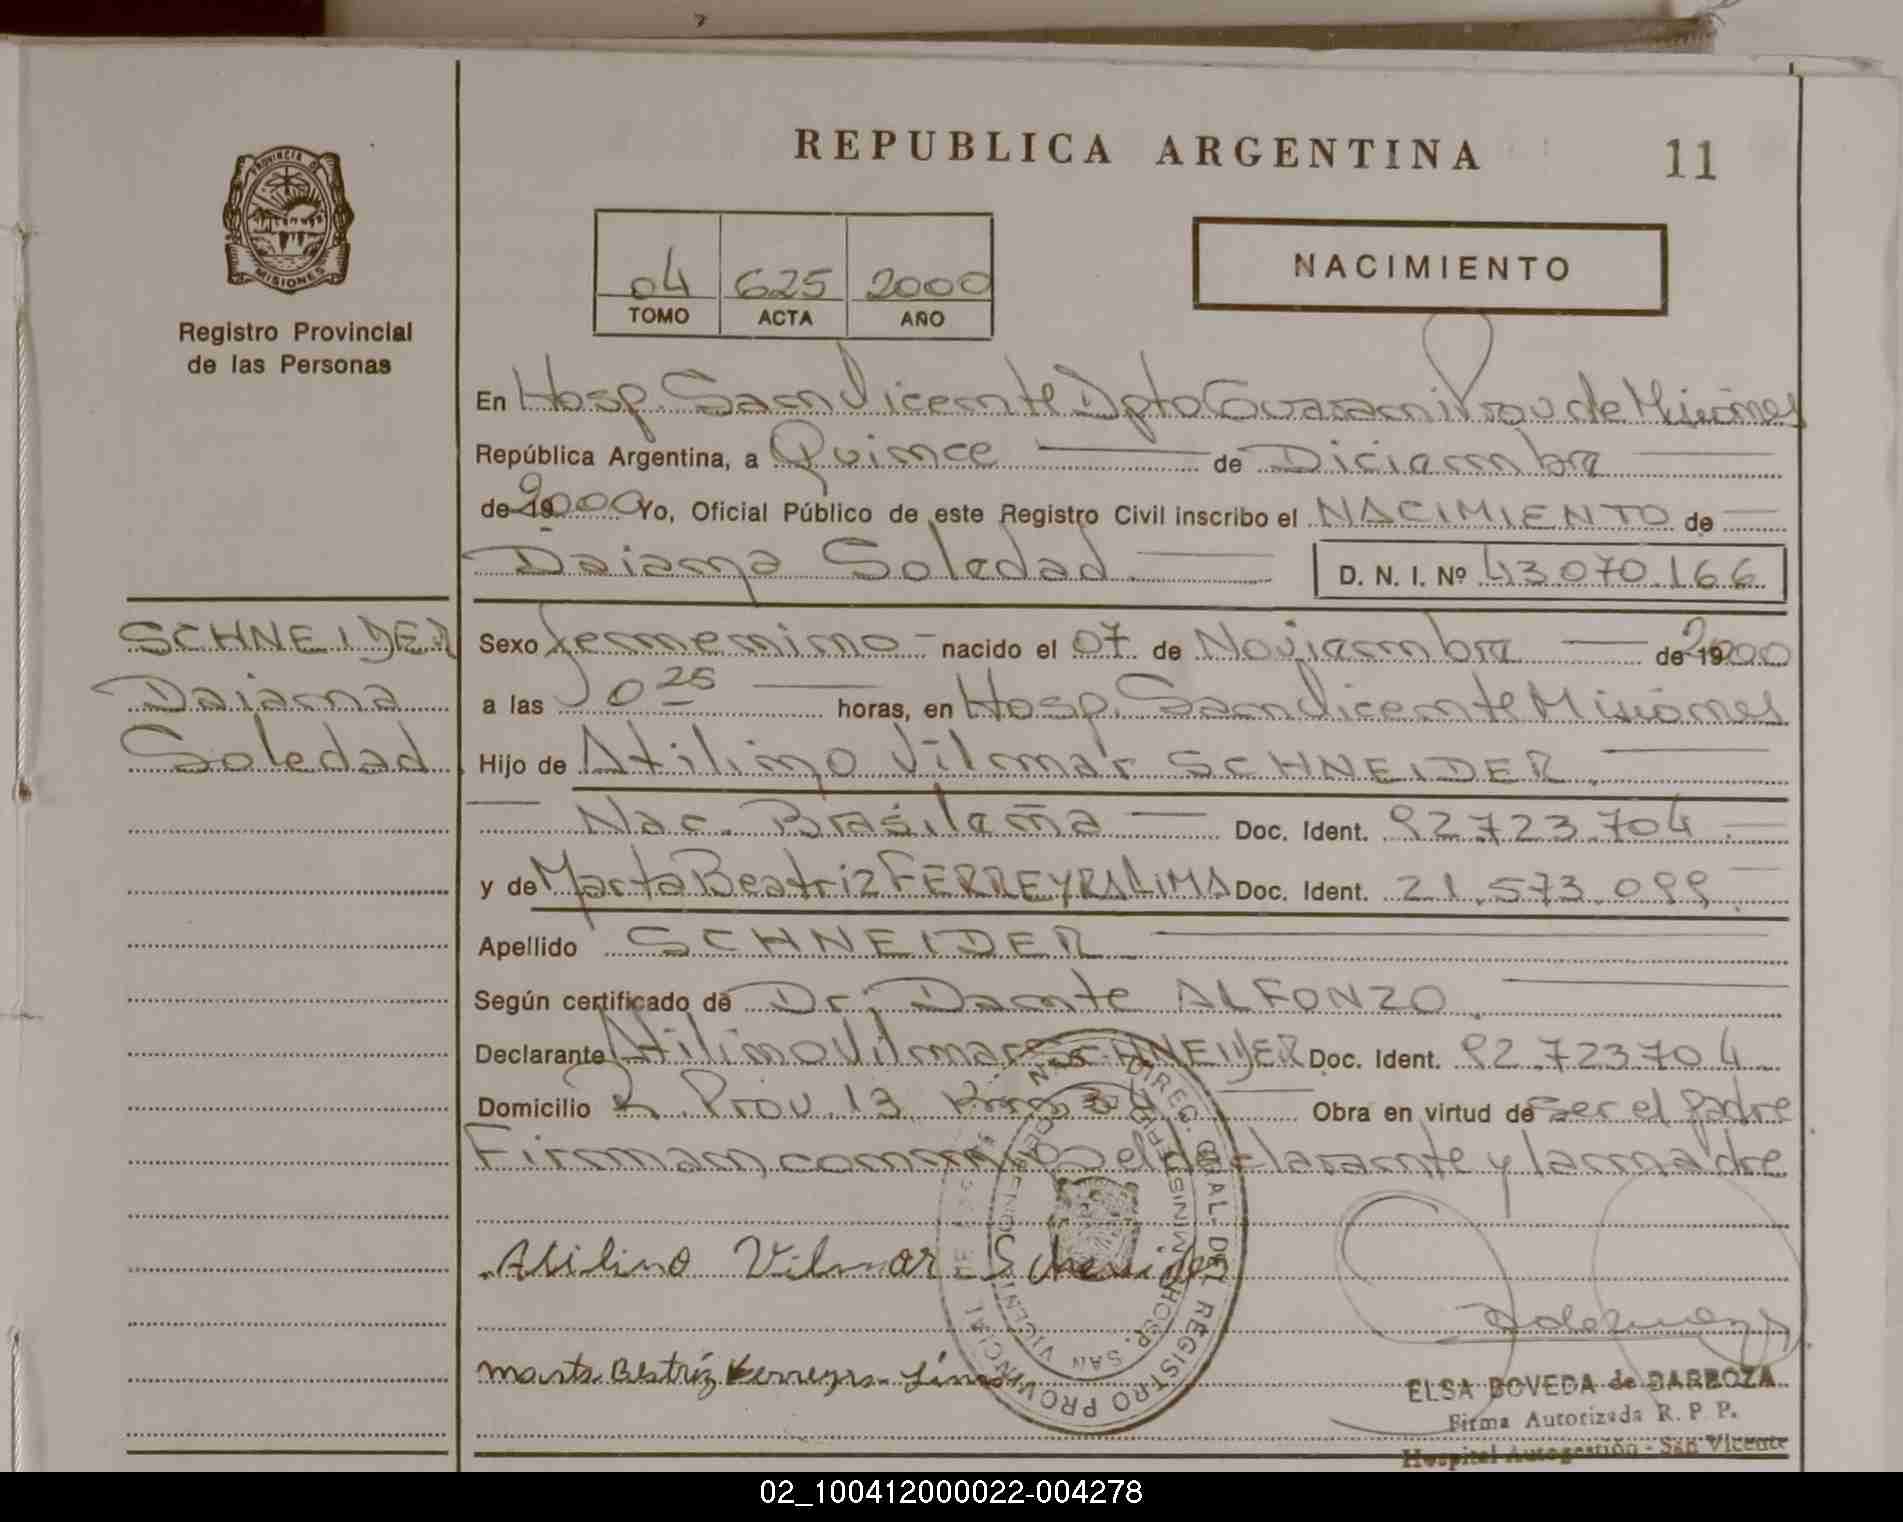 REPUBLICA ARGENTINA 11
PROVINCIA DE
MISIONES
Registro Provincial
de las Personas
04 625 2000
TOMO ACTA AÑO
NACIMIENTO
En Hosp. San Vicente Dpto Guarani Prov de Misiones
República Argentina, a Quince de Diciembre
de 19 2000 Yo, Oficial Público de este Registro Civil inscribo el NACIMIENTO de
Daiana Soledad D. N. I. Nº 43 070 166
SCHNEIDER
Daiana
Soledad
Sexo femenino nacido el 07 de Noviembre de 19 2000
a las 0 25 horas, en Hosp. San Vicente Misiones
Hijo de Atilino Vilmar SCHNEIDER
Nac. Brasileña Doc. Ident. 92 723 704
y de Marta Beatriz FERREYRA LIMA Doc. Ident. 21.573.099
Apellido SCHNEIDER
Según certificado de Dr. Dante ALFONZO
Declarante Atilino Vilmar SCHNEIDER Doc. Ident. 92 723 704
Domicilio R. Prov. 13 Km 30 Obra en virtud de ser el padre
Firman conmigo el declarante y la madre
Atilino Vilmar Schneider
Marta Beatriz Ferreyra Lima
DIREC. GRAL. DEL REGISTRO PROVINCIAL DE LAS
HOSP. SAN VICENTE
ELSA BOVEDA de BARBOZA
Firma Autorizada R. P. P.
Hospital Autogestión - San Vicente
02_100412000022-004278